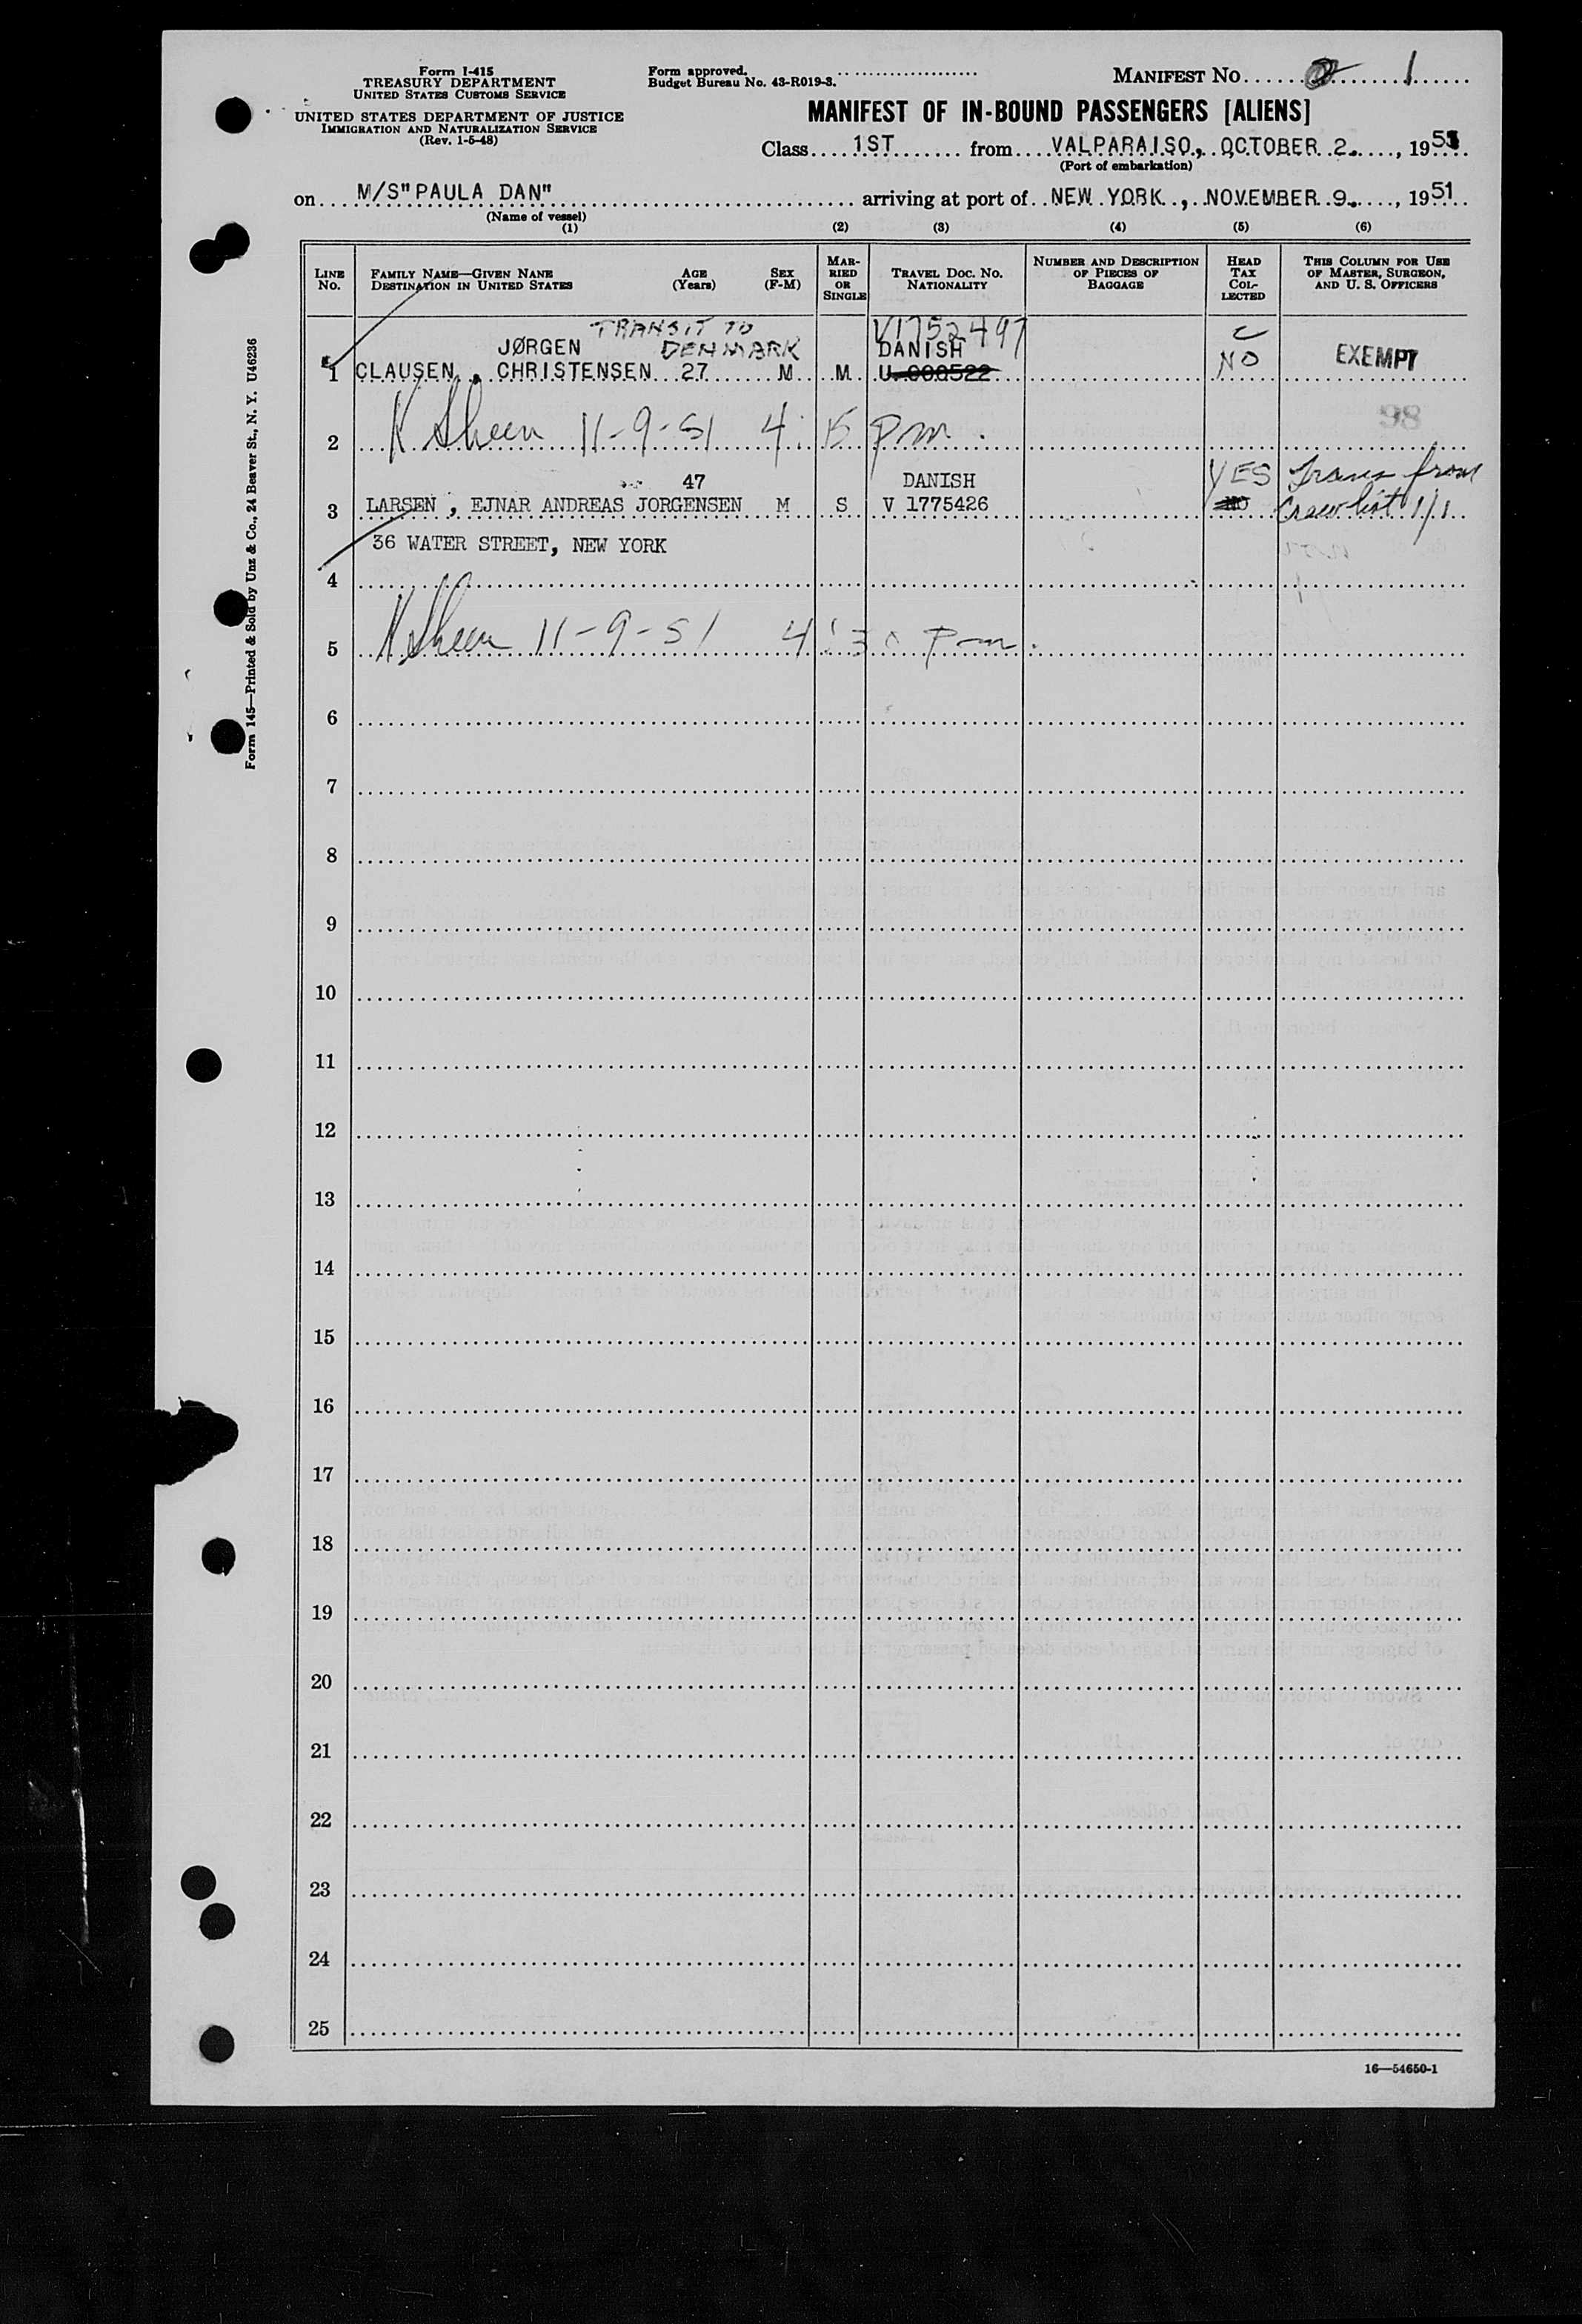 Form I-415
TREASURY DEPARTMENT
UNITED STATES CUSTOMS SERVICE
UNITED STATES DEPARTMENT OF JUSTICE
IMMIGRATION AND NATURALIZATION SERVICE
(Rev. 1-5-48)
Form approved.
Budget Bureau No. 43-R019-3.
MANIFEST No. 1
MANIFEST OF IN-BOUND PASSENGERS [ALIENS]
Class 1ST from VALPARAISO, OCTOBER 2., 1951
(Port of embarkation)
on M/S"PAULA DAN" arriving at port of NEW YORK, NOVEMBER 9., 1951
(Name of vessel)
(1) (2) (3) (4) (5) (6)
LINE No. FAMILY NAME—GIVEN NANE DESTINATION IN UNITED STATES AGE (Years) SEX (F-M) MARRIED OR SINGLE TRAVEL DOC. NO. NATIONALITY NUMBER AND DESCRIPTION OF PIECES OF BAGGAGE HEAD TAX COLLECTED THIS COLUMN FOR USE OF MASTER, SURGEON, AND U. S. OFFICERS
TRANSIT TO DENMARK V1752497 C
JØRGEN DANISH NO EXEMPT
1 CLAUSEN, CHRISTENSEN 27 M M U 000522
98
2 K Sheen 11-9-51 4:15 Pm.
47 DANISH YES Trans from
3 LARSEN, EJNAR ANDREAS JORGENSEN M S V 1775426 NO Crew list 1/1
36 WATER STREET, NEW YORK
4
5 K Sheen 11-9-51 4:30 Pm.
6
7
8
9
10
11
12
13
14
15
16
17
18
19
20
21
22
23
24
25
16—54650-1
Form 145—Printed & Sold by Unz & Co., 24 Beaver St., N. Y. U46236